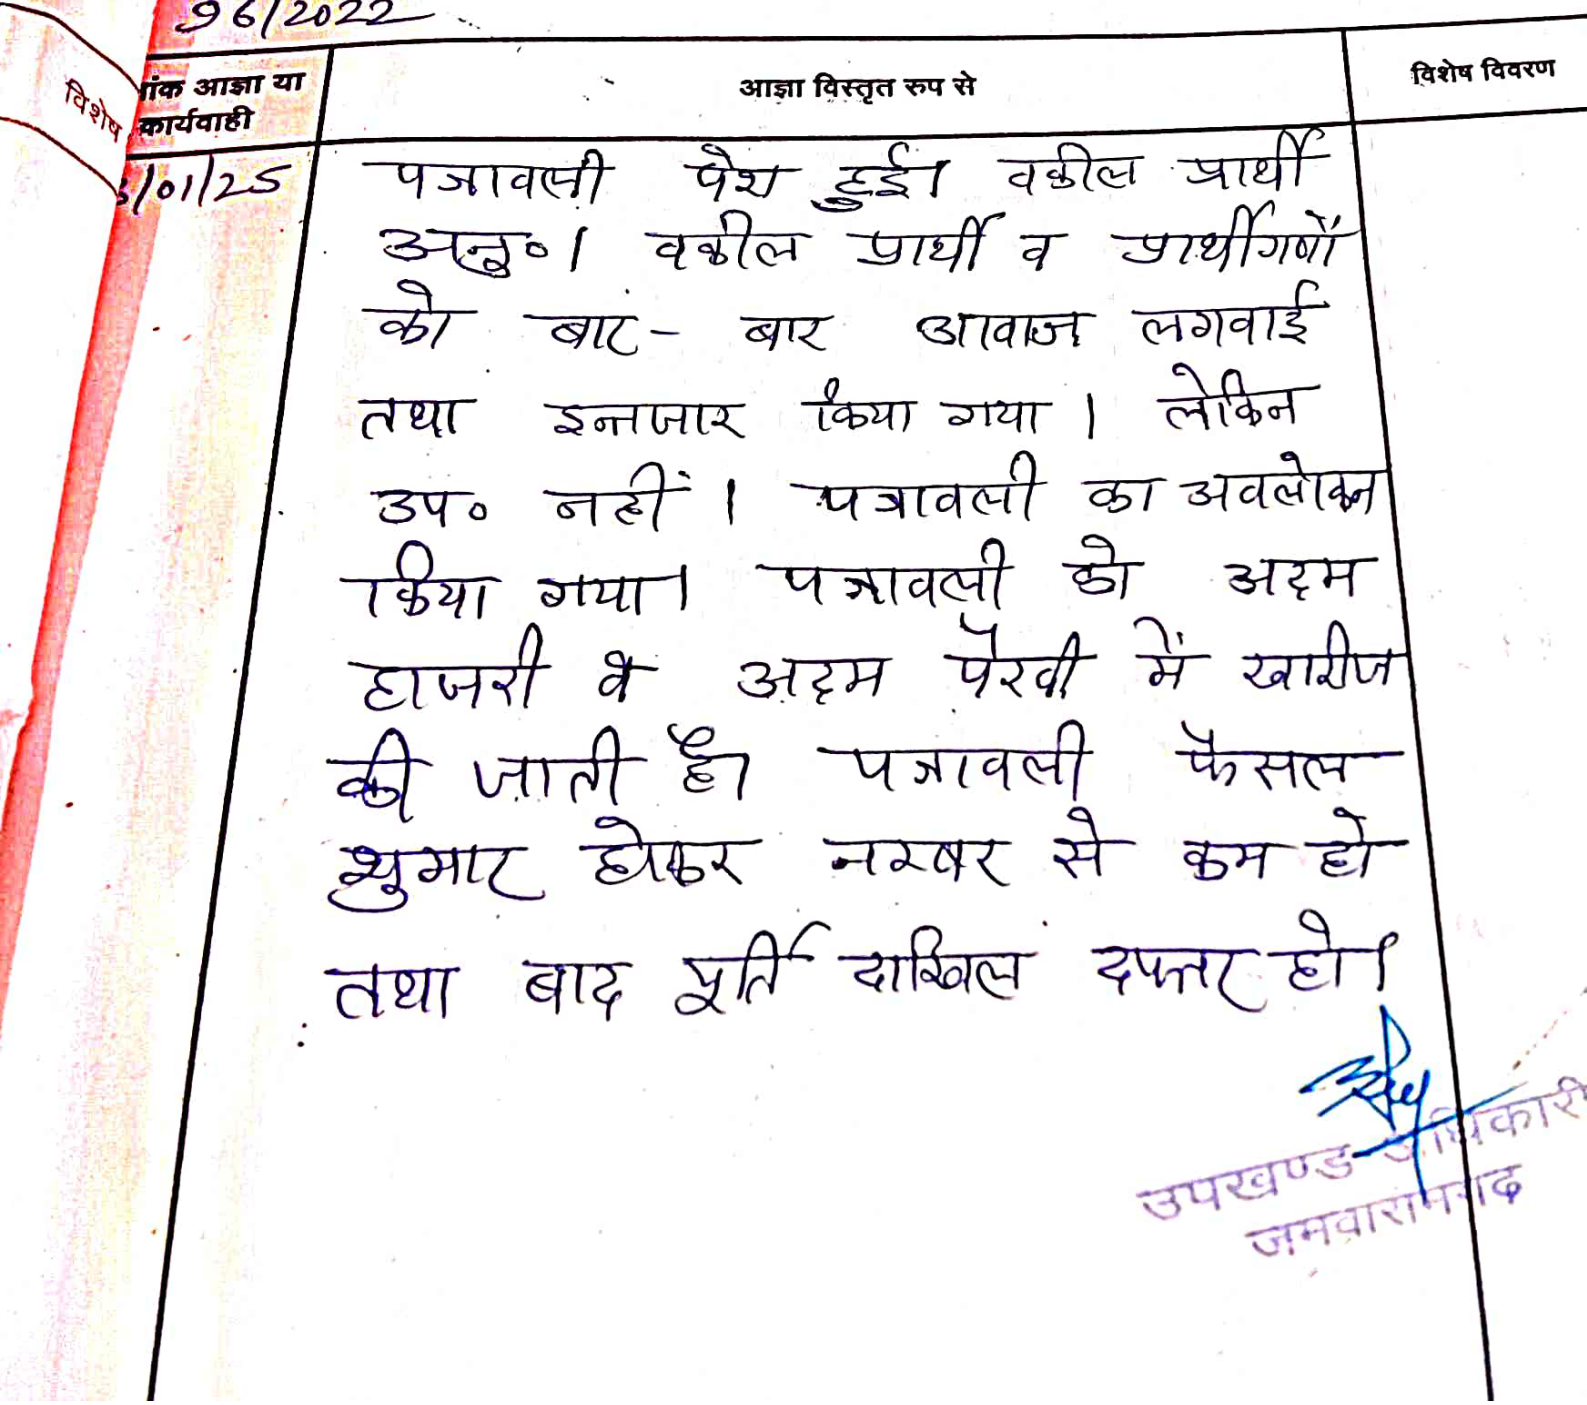 96/2022
विशेष
ांक आज्ञा या
कार्यवाही
आज्ञा विस्तृत रुप से
विशेष विवरण
3/01/25
पत्रावली पेश हुई। वकील प्रार्थी
अनु०। वकील प्रार्थी व प्रार्थीगणों
को बार - बार आवाज लगवाई
तथा इन्तजार किया गया । लेकिन
उप० नहीं । पत्रावली का अवलोकन
किया गया। पत्रावली को अदम
हाजरी व अदम पैरवी में खारीज
की जाती है। पत्रावली फैसल
शुमार होकर नम्बर से कम हो
तथा बाद पूर्ति दाखिल दफ्तर हो।
उपखण्ड अधिकारी
जमवारामगढ